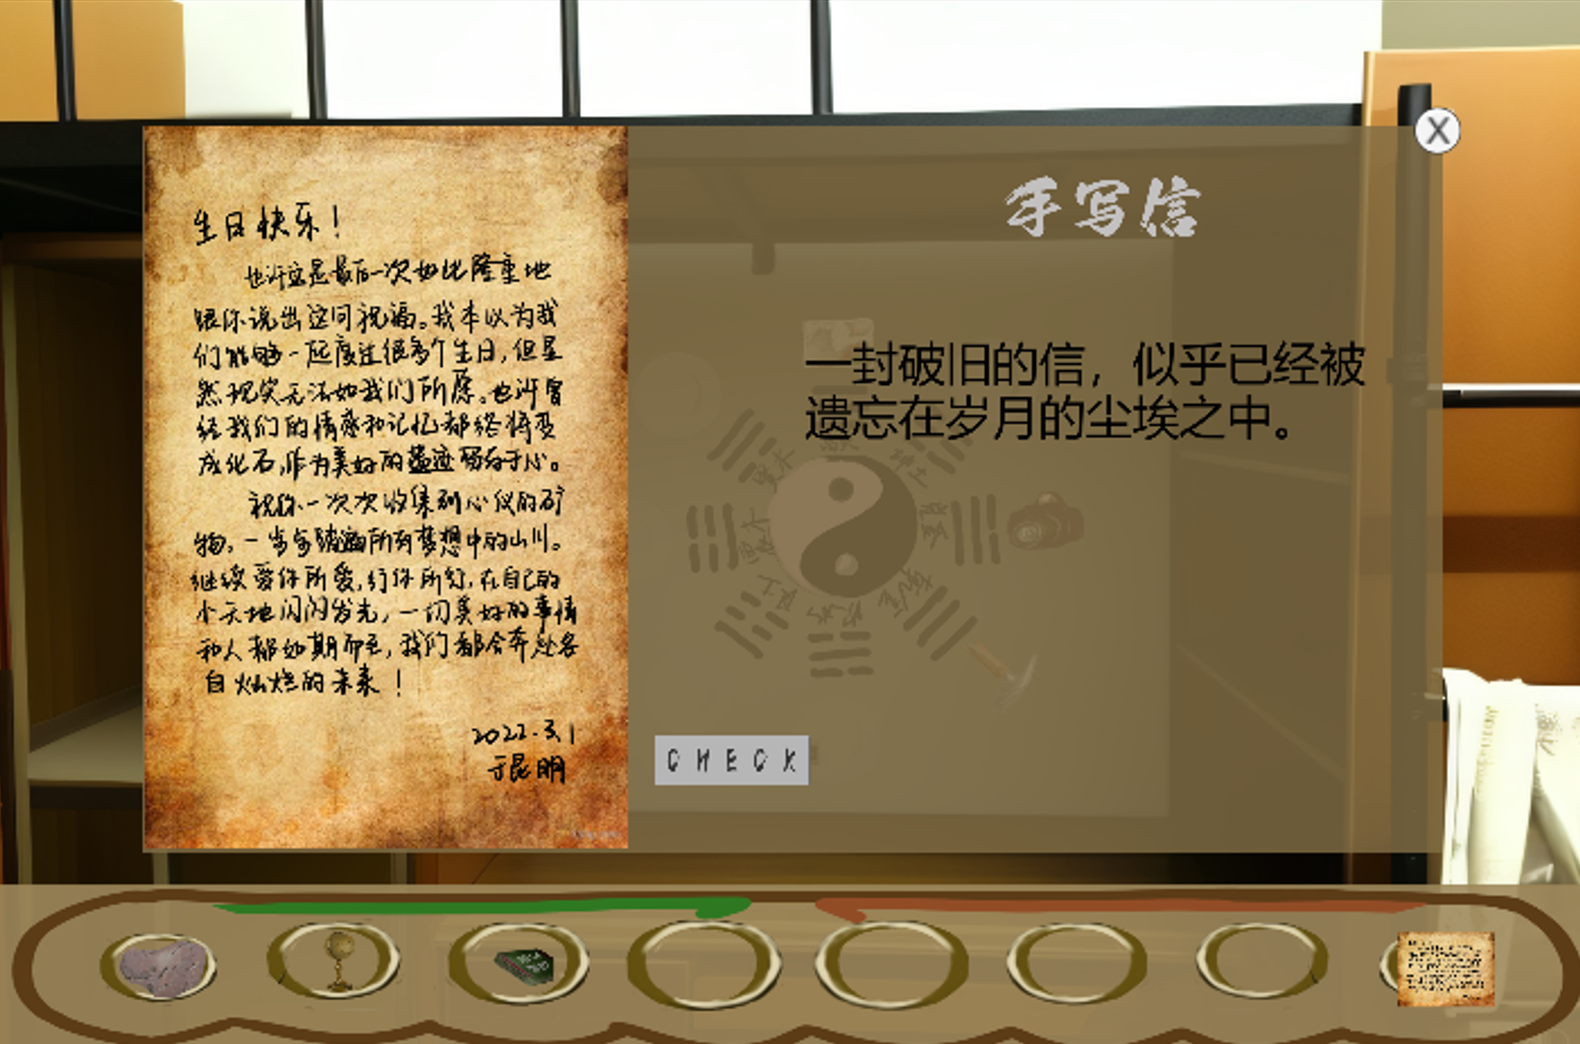 生日快乐！
也许这是最后一次如此隆重地
跟你说出这问祝福。我本以为我
们能够一起度过很多个生日，但显
然现实无法如我们所愿。也许曾
经我们的情感和记忆都终将变
成化石，作为美好的遗迹留存于心。
祝你一次次收集到心仪的矿
物，一步步踏遍所有梦想中的山川。
继续爱你所爱，行你所行，在自己的
小天地闪闪发光，一切美好的事情
和人都如期而至，我们都会奔赴各
自灿烂的未来！
2022.3.1
于昆明
手写信
一封破旧的信，似乎已经被
遗忘在岁月的尘埃之中。
CHECK
X